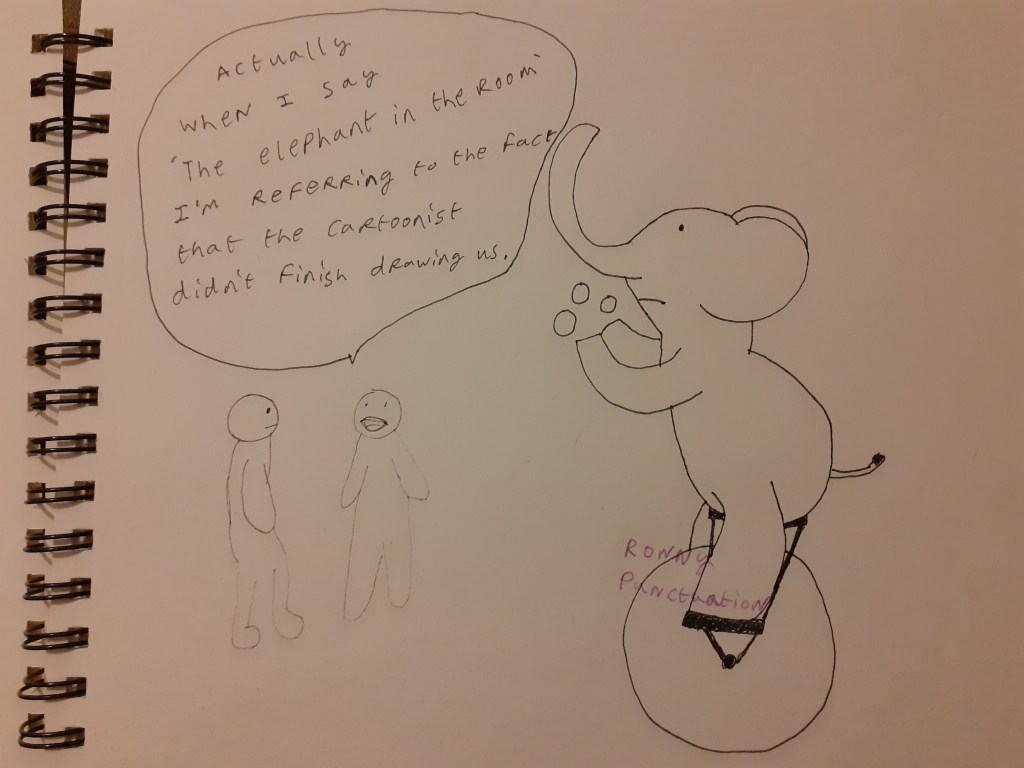 Actually
when I say
'The elephant in the room'
I'm referring to the fact
that the cartoonist
didn't finish drawing us.
Ronny
Punctuation